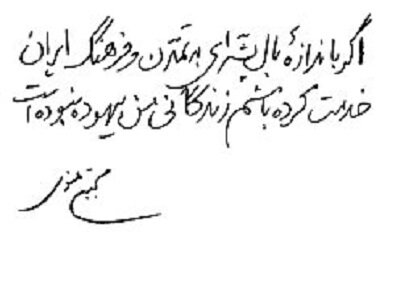 اگر باندازهٔ بال پشه‌ای به تمدن و فرهنگ ایران
خدمت کرده باشم زندگانی من بیهوده نبوده است
مجتبی مینوی